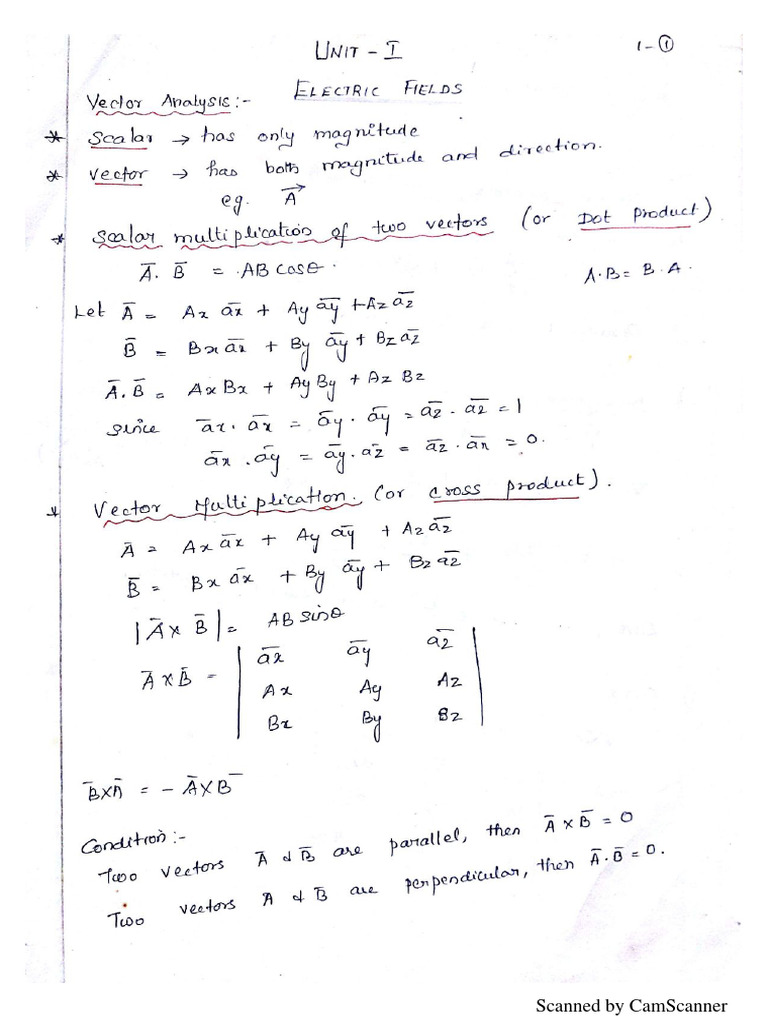 UNIT - I
1-①
ELECTRIC FIELDS
Vector Analysis:-
* Scalar → has only magnitude
* Vector → has both magnitude and direction.
eg. A⃗
* Scalar multiplication of two vectors (or Dot Product)
A̅. B̅ = AB cosθ.
A.B = B.A.
Let A̅ = Ax a̅x + Ay a̅y + Az a̅z
B̅ = Bx a̅x + By a̅y + Bz a̅z
A̅.B̅ = AxBx + AyBy + Az Bz
since a̅x. a̅x = a̅y. a̅y = a̅z. a̅z = 1
a̅x. a̅y = a̅y. a̅z = a̅z. a̅x = 0.
* Vector Multiplication. (or cross product).
A̅ = Ax a̅x + Ay a̅y + Az a̅z
B̅ = Bx a̅x + By a̅y + Bz a̅z
|A̅ x B̅| = AB sinθ
A̅ x B̅ = | a̅x a̅y a̅z |
| Ax Ay Az |
| Bx By Bz |
B̅ x A̅ = - A̅ x B̅
Condition:-
Two vectors A̅ & B̅ are parallel, then A̅ x B̅ = 0
Two vectors A & B̅ are perpendicular, then A̅.B̅ = 0.
Scanned by CamScanner